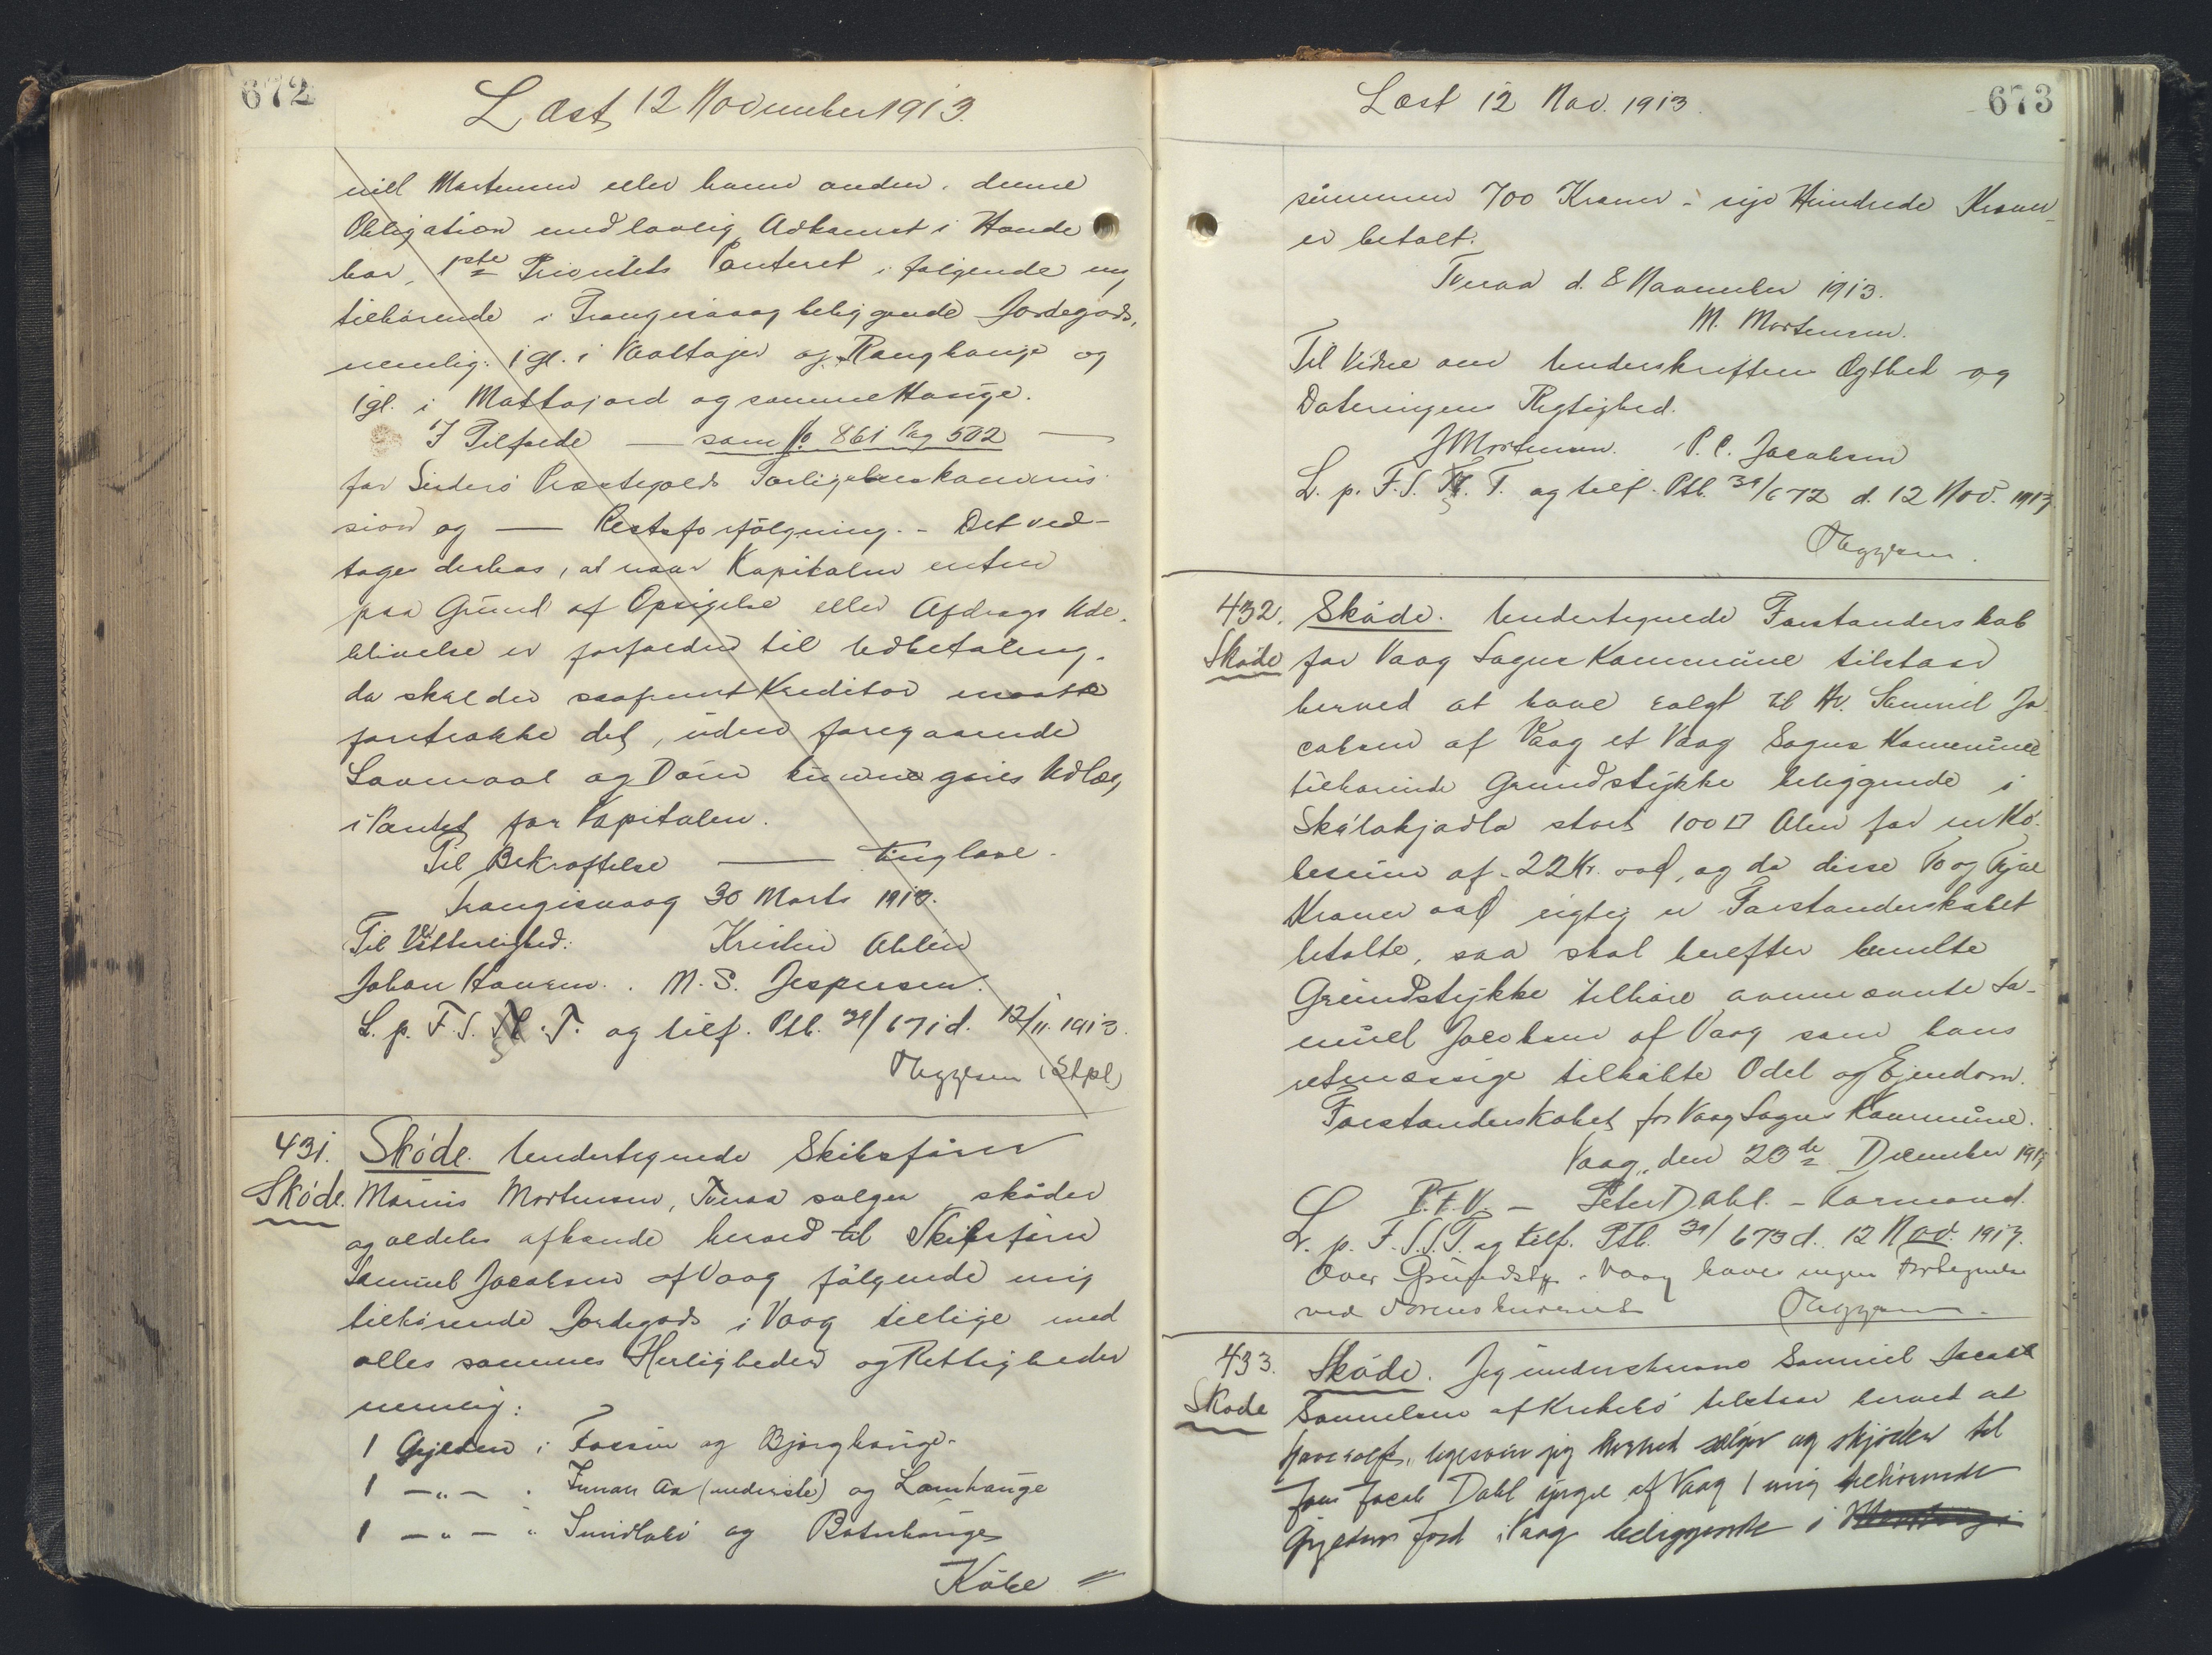 672
Læst 12 November 1913.
niel Mortensen eller hvem anden, denne
Obligation med lovlig Adkomst i Hænde
har, 1ste Prioritets Panteret i følgende mig
tilhørende i Trangisvaag beliggende Jordegods,
nemlig: 1 gl. i Vaaltajer og Ranghauge og
1 gl. i Mattajord og samme Hauge.
I Tilfælde — som No. 861 Pag 502 —
for Suderø Præstegjelds Forligelseskommis-
sion og — Retsforfølgning. - Det ved-
tages derhos, at naar Kapitalen enten
paa Grund af Opsigelse eller Afdrags Ude-
blivelse er forfalden til Udbetaling,
da skal der saafremt Kreditor maatte
foretrække det, uden foregaaende
Lovmaal og Dom kunne gøres Udlæg
i Pantet for Kapitalen.
Til Bekræftelse — tinglæse.
Trangisvaag 30 Marts 1913.
Til Vitterlighed: Kristin Ahlén
Johan Hansen. M. S. Jespersen.
L. p. F. S. T. og tilf. Ptb. 31/671 d. 12/11. 1913.
(Stpl)
431. Skøde. Undertegnede Skibsfører
Skøde. Marius Mortensen, Tveraa sælger, skøder
og aldeles afhænde herved til Skibsfører
Samuel Jacobsen af Vaag følgende mig
tilhørende Jordegods i Vaag tillige med
alles sammes Herligheder og Rettigheder
nemlig:
1 Gylden i Fossum og Bjørghauge.
1 -"- " Innan Aa (underste) og Lamhauge
1 -"- " og Botnhauge
Købe
673
Læst 12 Nov. 1913.
summen 700 Kroner - syv Hundrede Kroner
er betalt.
Tveraa d. 8 November 1913.
M. Mortensen.
Til Vidne om Underskriftens Ægthed og
Dateringens Rigtighed.
J Mortensen. P. C. Jacobsen
L. p. F. S. T. og tilf. Ptb. 31/672 d. 12 Nov. 1913
432. Skøde. Undertegnede Forstanderskab
Skøde for Vaag Sogns Kommune tilstaar
herved at have solgt til Hr. Samuel Ja-
cobsen af Vaag et Vaag Sogns Kommune
tilhørende Grundstykke beliggende i
Skálakjadla stort 100 □ Alen for en Kø-
besum af 22 Kr. og da disse To og Tyve
Kroner rigtig er Forstanderskabet
betalte, saa skal herefter bemelte
Grundstykke tilhøre ovennævnte Sa-
muel Jacobsen af Vaag som hans
retmæssige tilkøbte Odel og Ejendom.
Forstanderskabet for Vaag Sogns Kommune.
Vaag, den 20de December 191
P. F. V. - Peter Dahl. - Formand.
L. p. F. S. S. T. og tilf. Ptb. 31/673 d. 12 Nov. 1913.
Over Grundstk. i Vaag haves ingen Fortegnelse
ved Sorenskriveriet
433. Skøde. Jeg underskrevne Samuel Jacob
Skøde Samuelsen af Krebebø tilstaar herved at
have solgt, ligesom jeg herved sælger og skjøder til
Joen Jacob Dahl yngre af Vaag 1 mig tilhørende
Gylden Jord i Vaag beliggende i